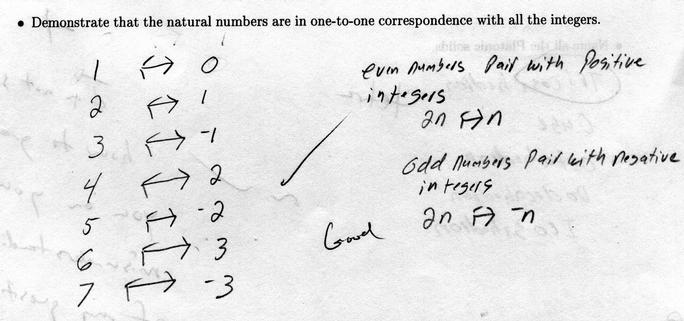 • Demonstrate that the natural numbers are in one-to-one correspondence with all the integers.
1 ↔ 0
2 ↔ 1
3 ↔ -1
4 ↔ 2
5 ↔ -2
6 ↔ 3
7 ↔ -3
even numbers Pair with Positive
integers
2n ↔ n
Odd Numbers Pair with negative
integers
2n ↔ -n
Good